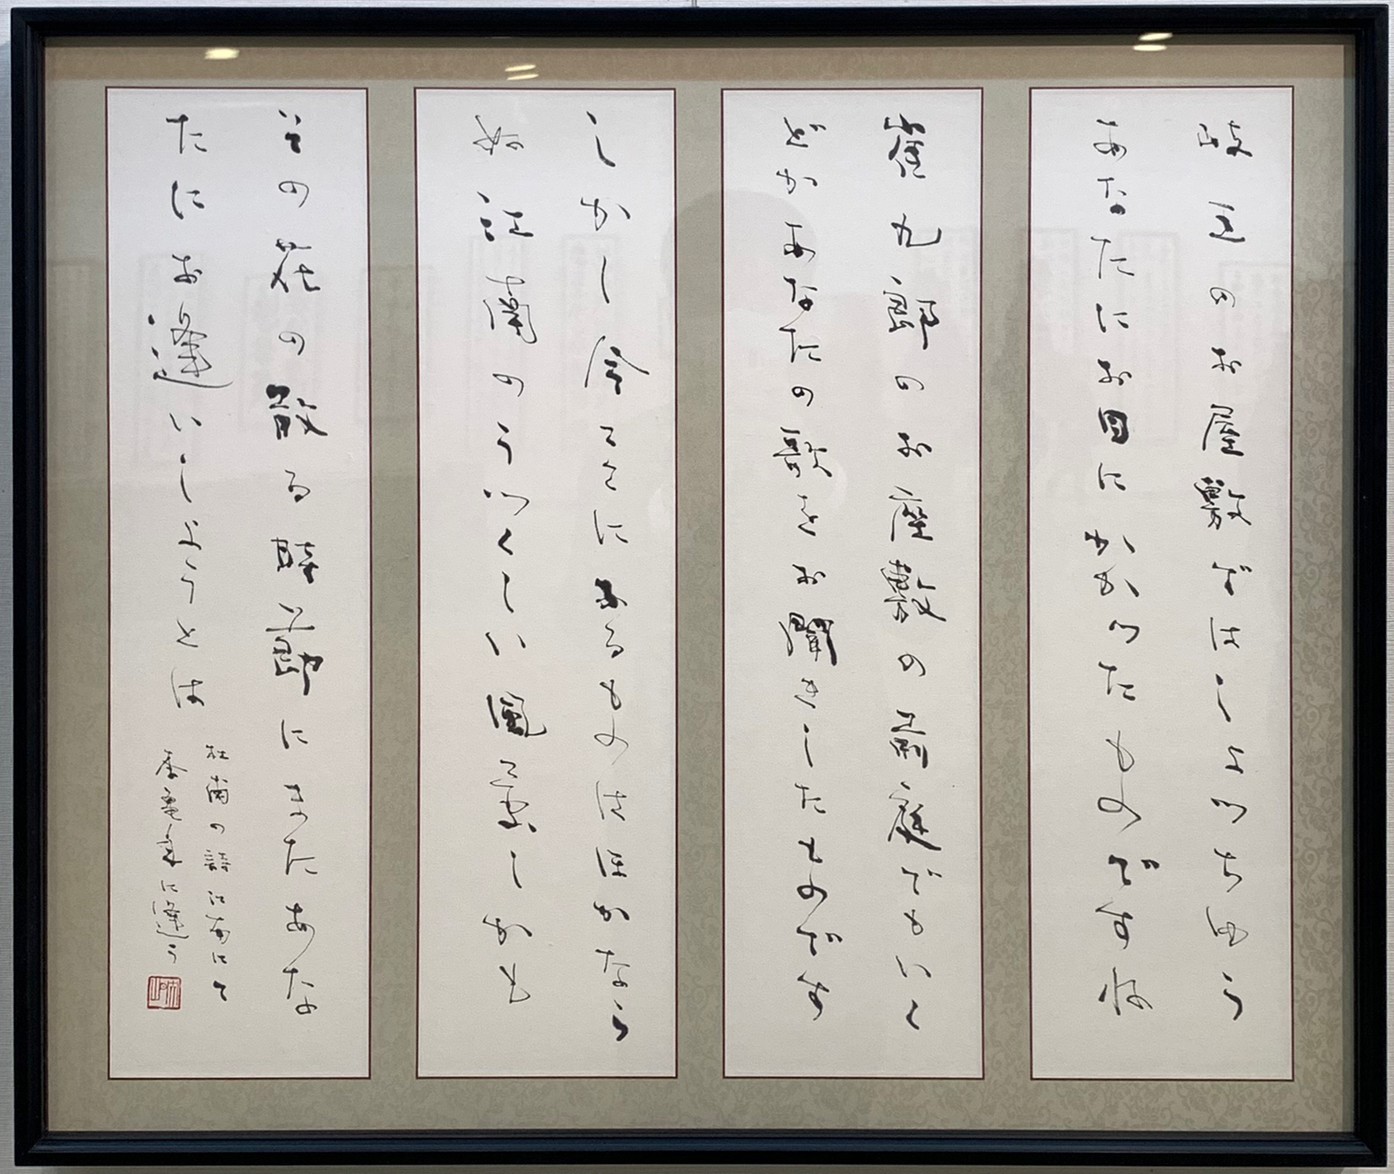 岐王のお屋敷ではしよつちゆう
あなたにお目にかかつたものですね
崔九郎のお座敷の前庭でもいく
どかあなたの歌をお聞きしたものです
しかし今ここにあるものはほかなら
ぬ江南のうつくしい風景しかも
その花の散る時節にまたあな
たにお逢いしようとは
杜甫の詩江南にて
李亀年に逢う